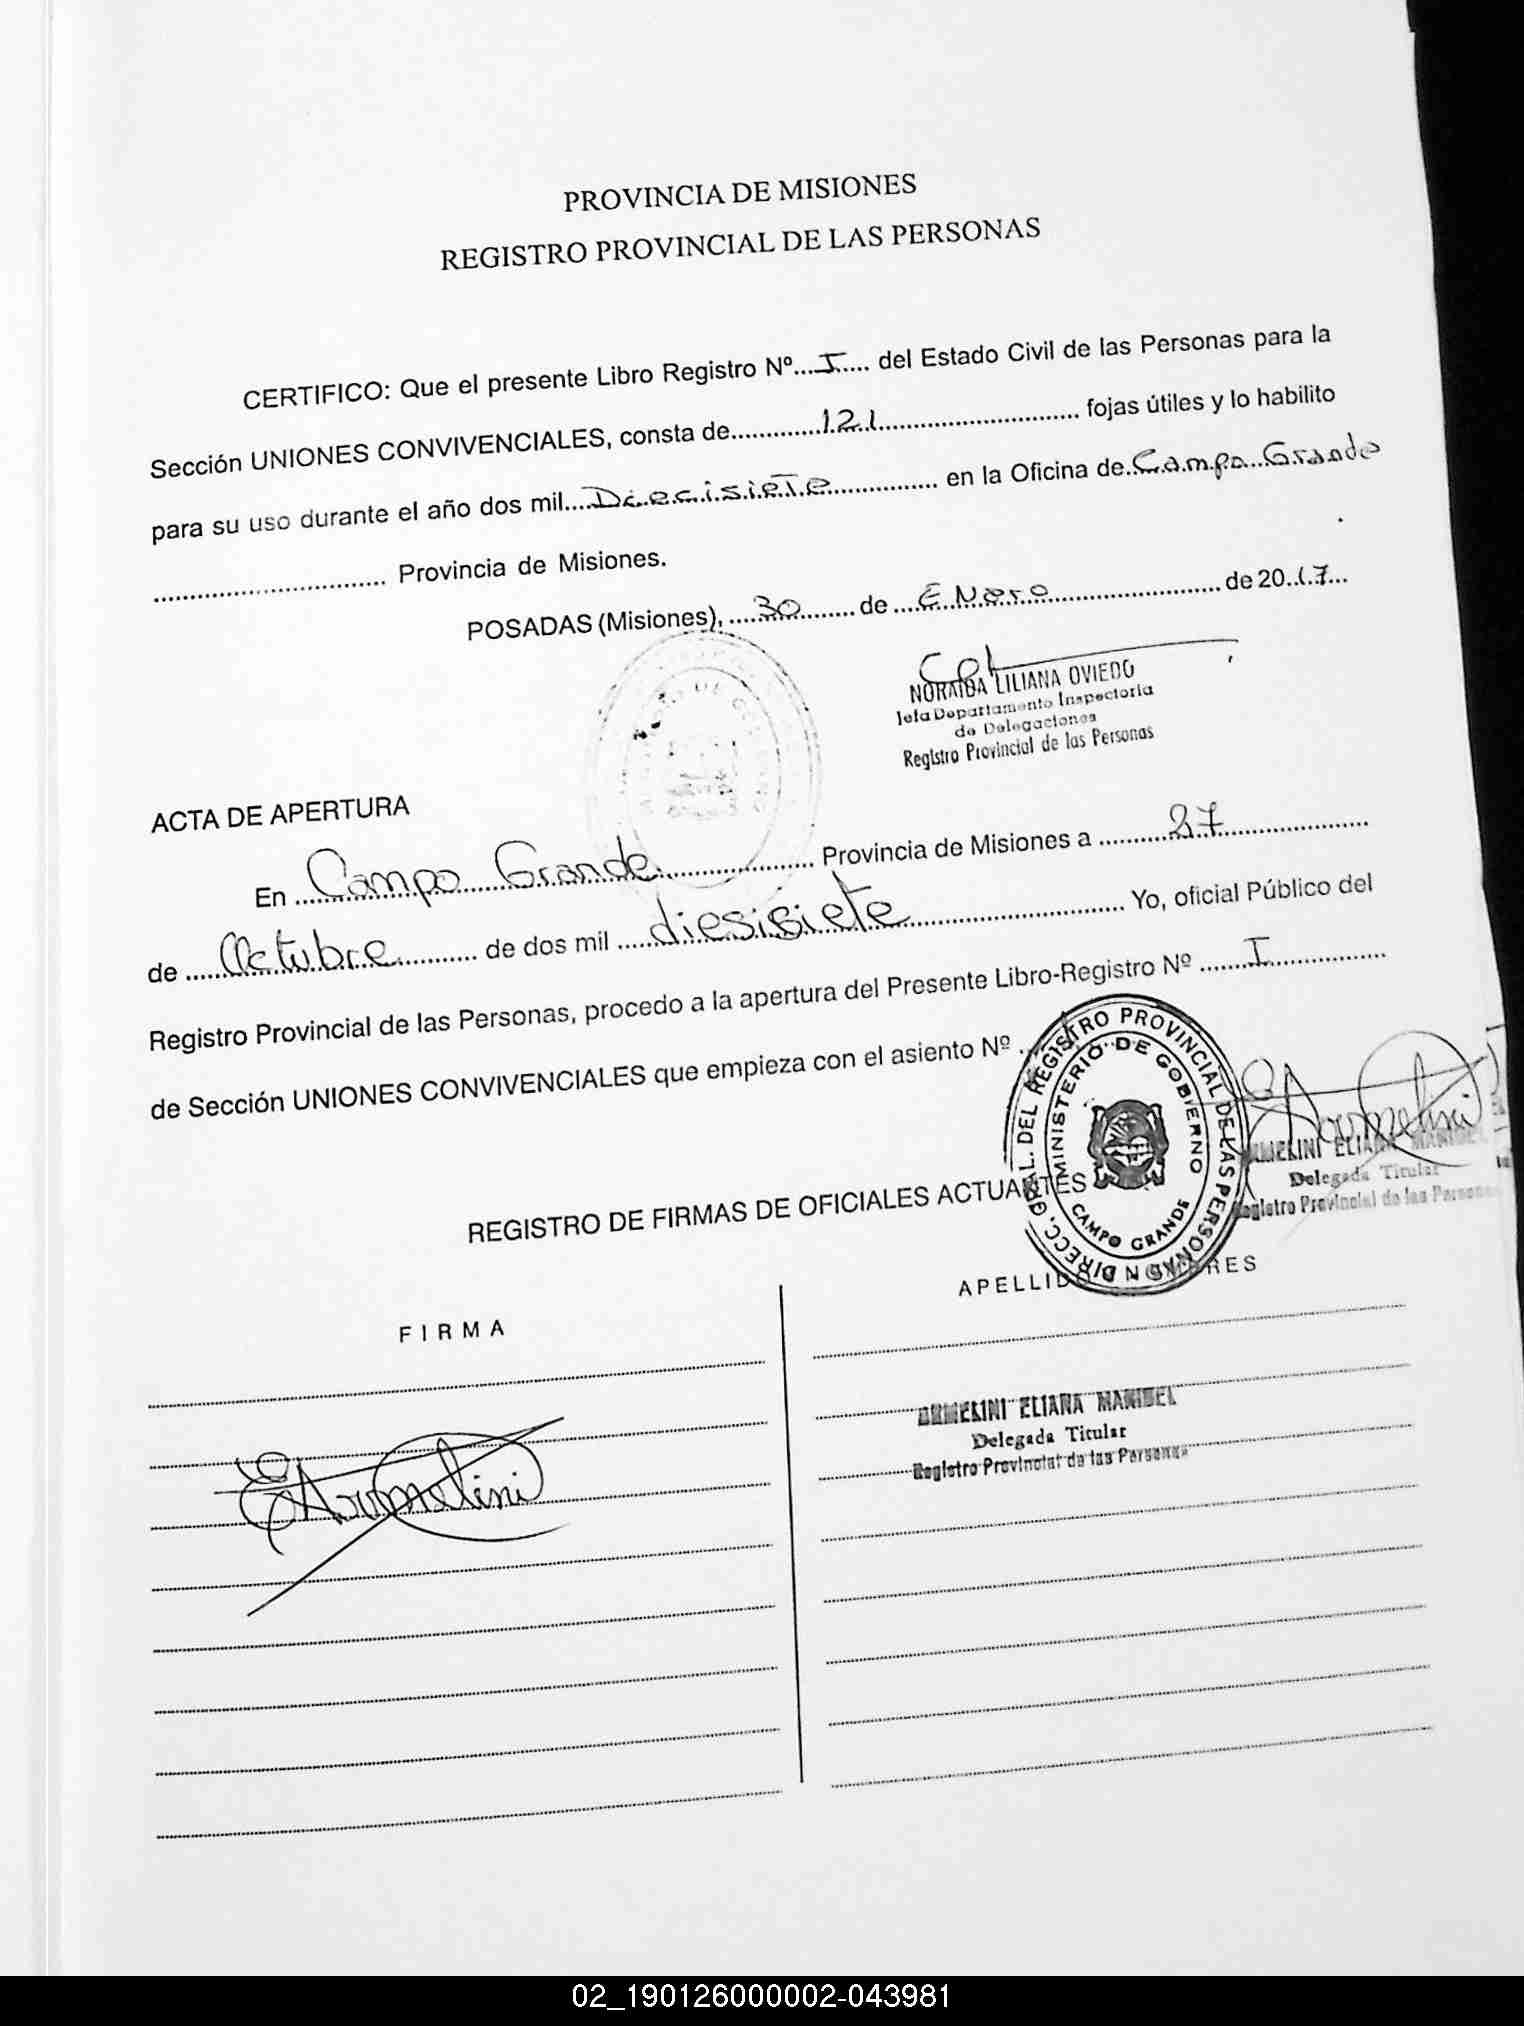 PROVINCIA DE MISIONES
REGISTRO PROVINCIAL DE LAS PERSONAS
CERTIFICO: Que el presente Libro Registro Nº...I.... del Estado Civil de las Personas para la
Sección UNIONES CONVIVENCIALES, consta de.............121............................ fojas útiles y lo habilito
para su uso durante el año dos mil....Diecisiete............... en la Oficina de..Campo Grande
................................ Provincia de Misiones.
POSADAS (Misiones), ....30....... de ...Enero........................ de 20..17...
NORAIDA LILIANA OVIEDO
Jefa Departamento Inspectoria
de Delegaciones
Registro Provincial de las Personas
ACTA DE APERTURA
En ...Campo Grande..................... Provincia de Misiones a ..........27....................
de .....Octubre........... de dos mil .....diesisiete.............................. Yo, oficial Público del
Registro Provincial de las Personas, procedo a la apertura del Presente Libro-Registro Nº .......I................
de Sección UNIONES CONVIVENCIALES que empieza con el asiento Nº
DIRECC. GRAL. DEL REGISTRO PROVINCIAL DE LAS PERSONAS
MINISTERIO DE GOBIERNO
CAMPO GRANDE
EArmelini
ARMELINI ELIANA MARIBEL
Delegada Titular
Registro Provincial de las Personas
REGISTRO DE FIRMAS DE OFICIALES ACTUANTES
FIRMA
APELLIDO Y NOMBRES
EArmelini
ARMELINI ELIANA MARIBEL
Delegada Titular
Registro Provincial de las Personas
02_190126000002-043981